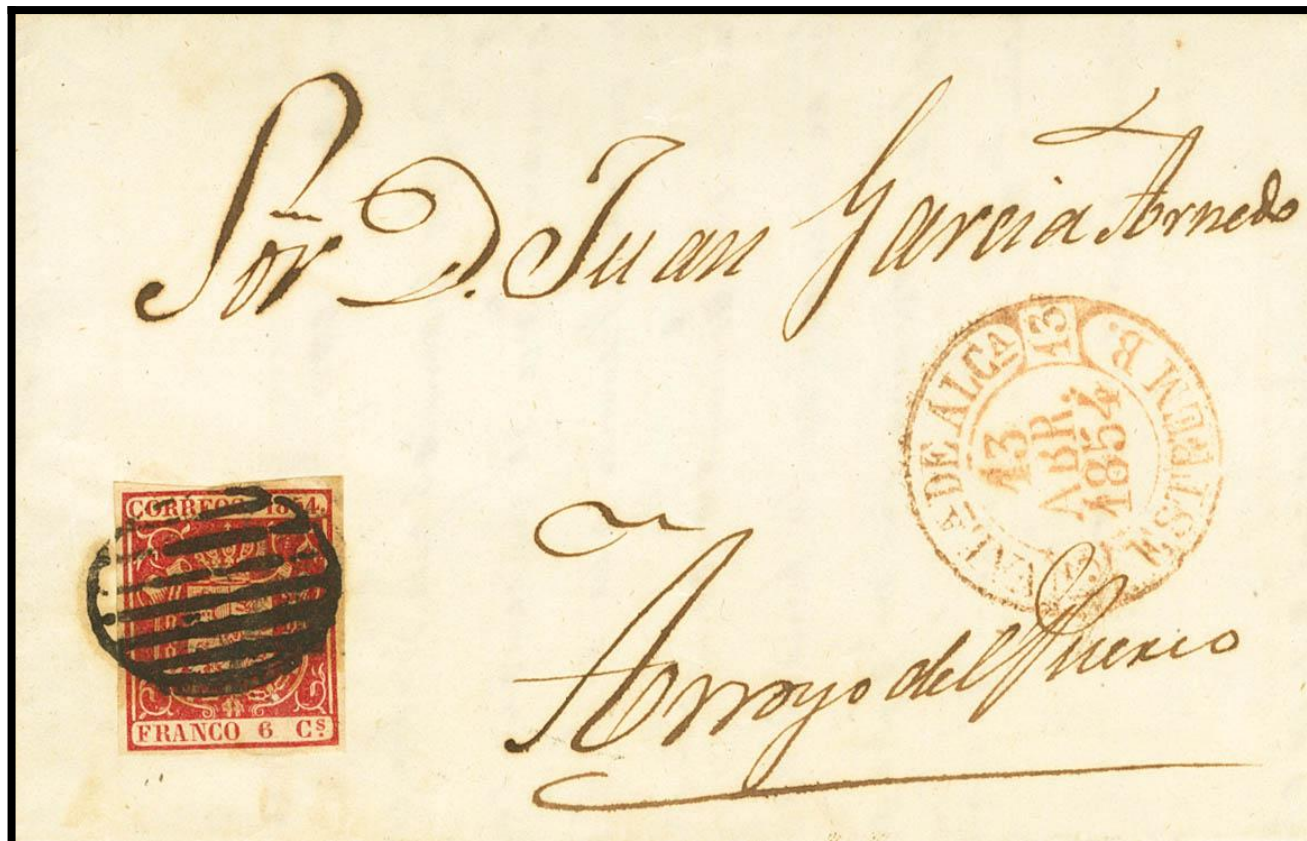 Sor D. Juan Garcia Arnedo
VALA DE ALCA 13
ESTREM B.
13
ABR.
1854
CORREOS 1854.
FRANCO 6 Cs.
Arroyo del Puerco